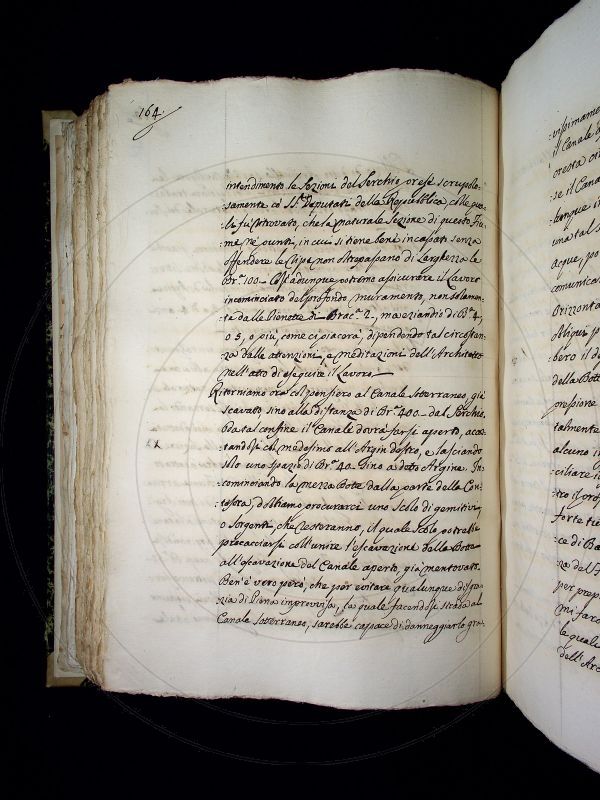 164
intendimento le Sezioni del Serchio prese scrupolo-
samente co' SS.ri Deputati della Repubblica, colle qua-
li fu ritrovato, che la naturale Sezione di questo Fiu-
me ne' punti, in cui si tiene bene incassato senza
offendere le Ripe, non oltrapassano di Larghezza le
Br.a 100. Così adunque potremo assicurare il Lavoro
incominciato del profondo muramento, non solamen-
te dalle Pienette di Brac.a 2, ma eziandio di B.a 4,
o 5, o più, come ci piacerà, dipendendo tal circostan-
za dalle attenzioni, e meditazioni dell'Architetto
nell'atto di eseguire il Lavoro.
Ritorniamo ora col pensiero al Canale Sotterraneo, già
scavato, sino alla distanza di Br.a 400 dal Serchio.
Da tal confine il Canale dovrà farsi aperto, acco-
standosi col medesimo all'Argin destro, e lasciando
solo uno spazio di Br.a 40 sino a dato Argine. In-
cominciando la mezza Botte dalla parte della Con-
tesora, dobbiamo procurarci uno Scolo di gemitivi,
o Sorgenti, che resteranno, il quale Scolo potrebbe
procacciarsi coll'unire l'escavazione della Botte
all'escavazione del Canale aperto, già mentovato.
Ben'è vero però, che per evitare qualunque disgra-
zia di Piena improvvisa, la quale facendosi strada al
Canale Sotterraneo, sarebbe capace di danneggiarlo gra-
il Canale
questa
se il Cana
una tal s
acque, po
comunica
Orizzonta
bero il d
della Botte
pressione
talmente
alcuno i
ciliare il
tro il prof
forte ti
ce di Ba
za del F
per prep
mi farò
le quali
dell'Arc